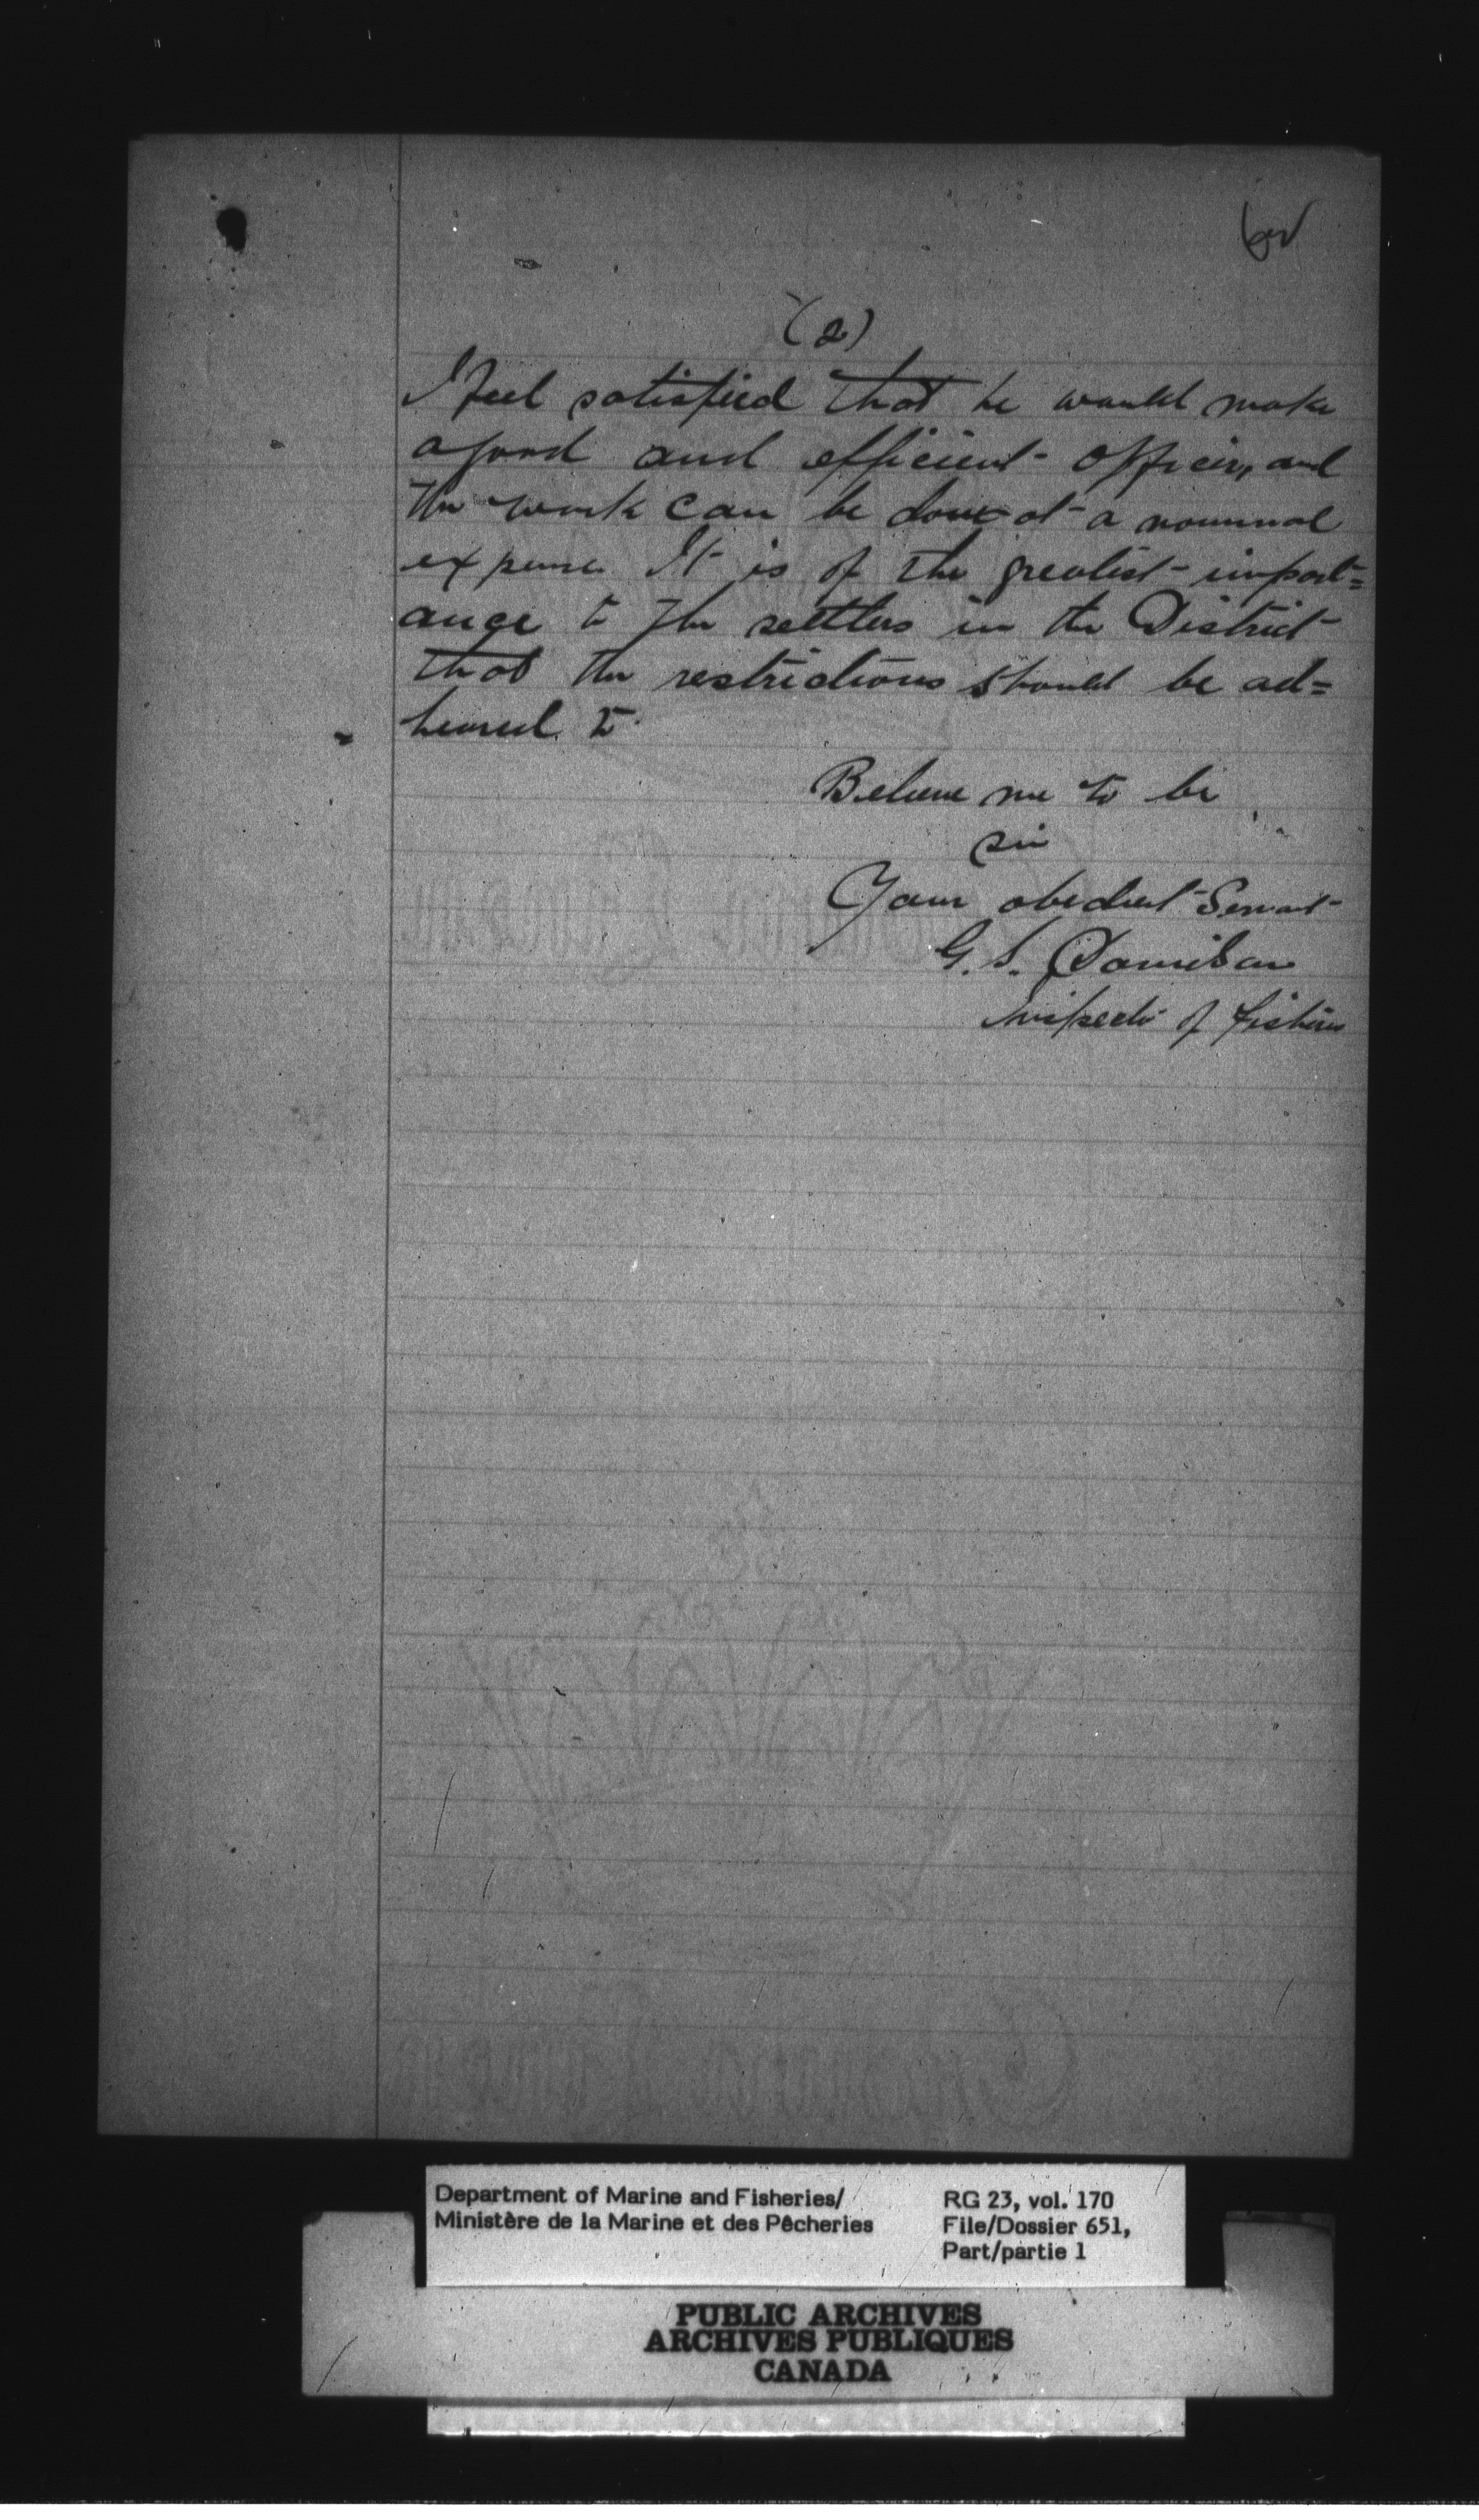 (2)
I feel satisfied that he would make
a good and efficient officer, and
the work can be done at a nominal
expense. It is of the greatest import=
ance to the settlers in the District
that the restrictions should be ad=
hered to.
Believe me to be
Sir
Your obedient Servant
G. S.
Inspector of Fisheries
Department of Marine and Fisheries/
Ministère de la Marine et des Pêcheries
RG 23, vol. 170
File/Dossier 651,
Part/partie 1
PUBLIC ARCHIVES
ARCHIVES PUBLIQUES
CANADA